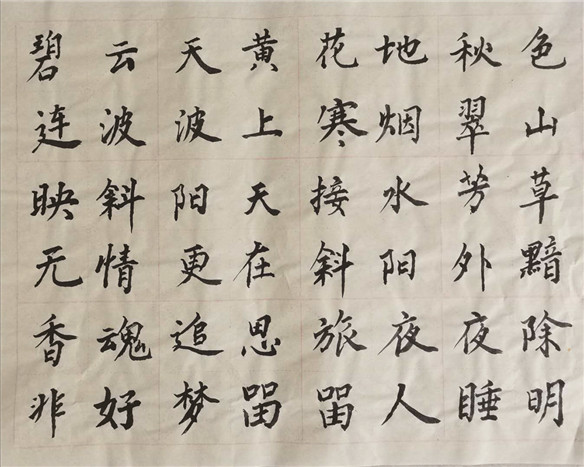 碧云天黄花地秋色
连波波上寒烟翠山
映斜阳天接水芳草
无情更在斜阳外黯
香魂追思旅夜夜除
非好梦留留人睡明